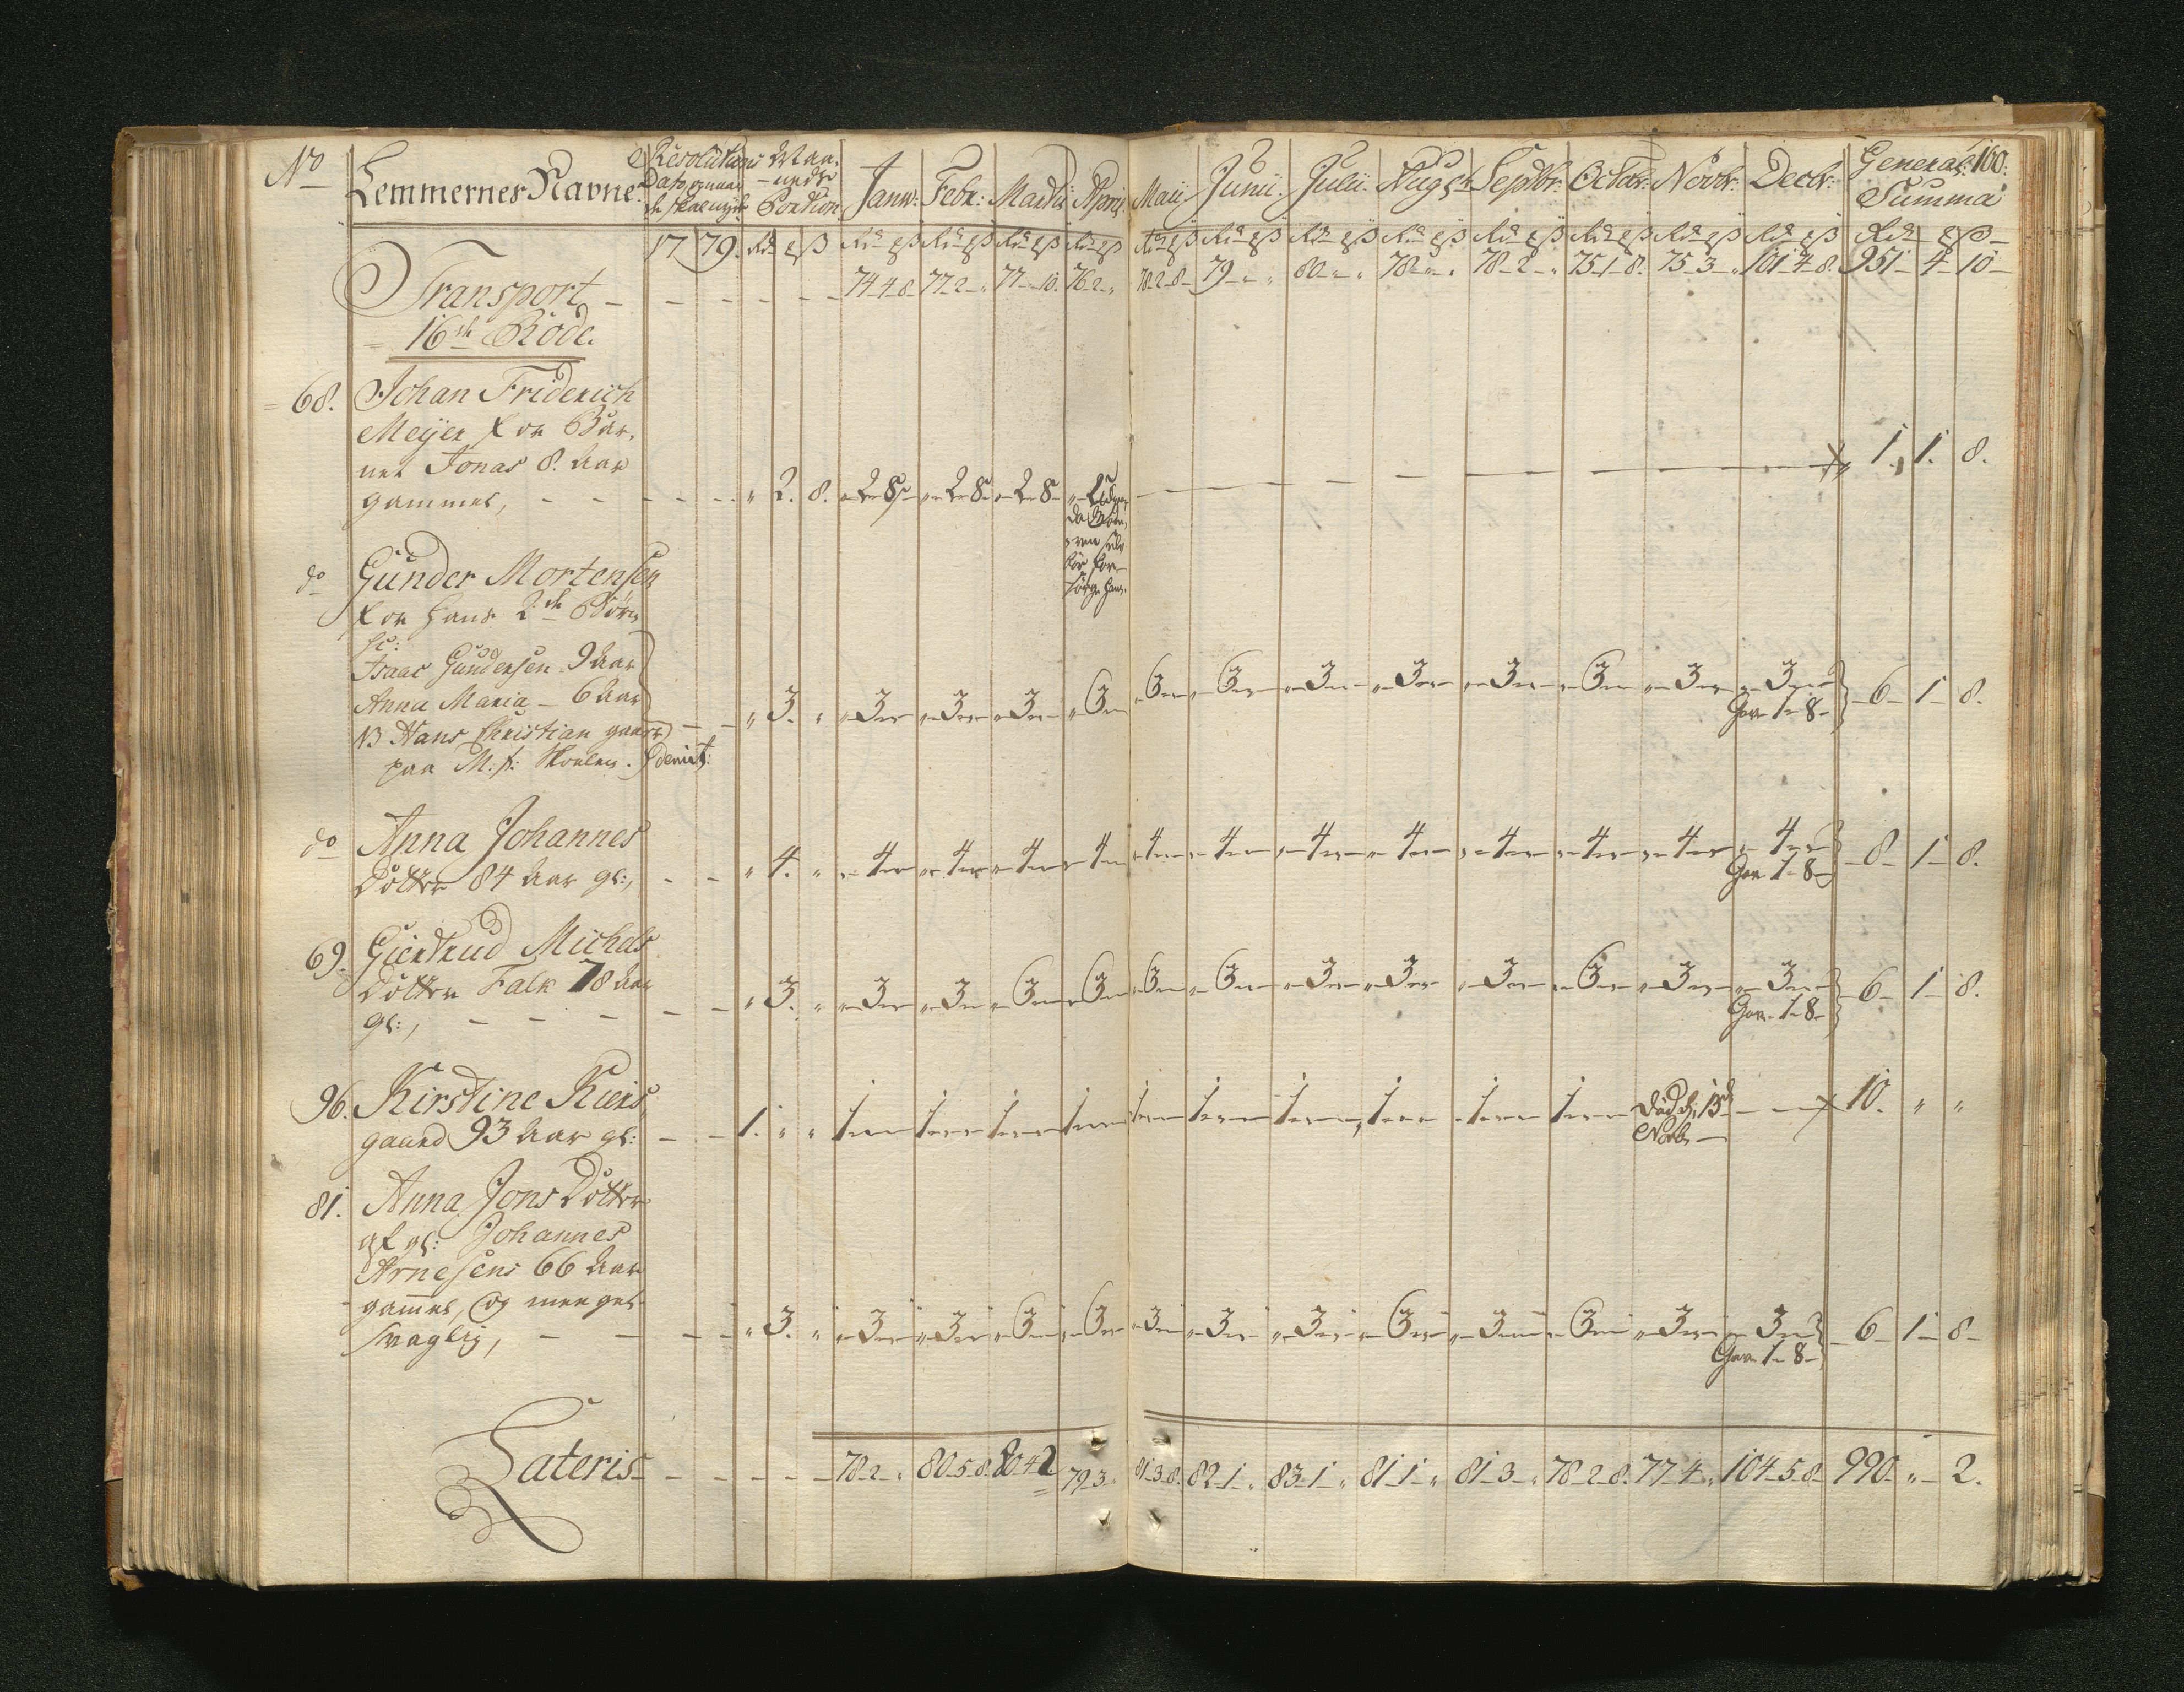 No Lemmernes Navne. Resolutions Dato og naar de skal nyde Maanedl Portion Janv: Febr: Martii Aprili Maii Junii. Julii. Augst Septbr: Octbr: Novbr: Decbr: General: Summa 160.
17 79. Rdr ß Rdr ß Rdr ß Rdr ß Rdr ß Rdr ß Rdr ß Rdr ß Rdr ß Rdr ß Rdr ß Rdr ß Rdr ß Rdr ß
Transport - - - - - 74-4-8. 77-2-„ 77-„-10. 76-2-„ 78-2-8- 79-„-„ 80-„-„ 78-„-„ 78-2-„ 75-1-8. 75-3-„ 101-4-8. 951-4-10-
16de Rode.
68. Johan Friderich
Meyer for Bar,
net Jonas 8. Aar
gammel, - - - - - „ 2. 8. „-2-8- „-2-8- „-2-8- - - - - - - - 1. 1. 8.
do Gunder Mortensen
for hans 2de Börn
sc:
Isaac Gundersen 9 Aar
Anna Maria - 6 Aar
NB Hans Christian gaaer - - „ 3. „ „-3-„- „-3-„- „-3-„- „-3-„- „-3-„- „-3-„- „-3-„- „-3-„- „-3-„- „-3-„- „-3-„- „-3-„- -6-1-8.
Gav. 1-8-
paa M: f: Skolen.
do Anna Johannes
Dotter 84 Aar gl:, - - „ 4. „ „-4-„- „-4-„- „-4-„- „-4-„- „-4-„- „-4-„- „-4-„- „-4-„- „-4-„- „-4-„- „-4-„- „-4-„- -8-1-8.
Gav. 1-8-
69. Giertrud Michels
Dotter Falk 78 Aar
gl:, - - - - - „ 3. „ „-3-„- „-3-„- „-3-„- „-3-„- „-3-„- „-3-„- „-3-„- „-3-„- „-3-„- „-3-„- „-3-„- „-3-„- -6-1-8.
Gav. 1-8-
96. Kirstine Kiers,
gaard 93 Aar gl: - - 1. „ „ 1-„-„ 1-„-„ 1-„-„ 1-„-„ 1-„-„ 1-„-„ 1-„-„ 1-„-„ 1-„-„ 1-„-„ Död d: 13de Novbr - - 10. „ „
81. Anna Jons Dotter
af gl: Johannes
Arnesens 66 Aar
gammel, og meeget
svaglig, - - - - „ 3. „ „-3-„- „-3-„- „-3-„- „-3-„- „-3-„- „-3-„- „-3-„- „-3-„- „-3-„- „-3-„- „-3-„- „-3-„- -6-1-8-
Gav. 1-8-
Lateris - - - - - 78-2-„ 80-5-8. 80-4-2 79-3-„ 81-3-8. 82-1-„ 83-1-„ 81-1-„ 81-3-„ 78-2-8. 77-4-„ 104-5-8- 990. „-2.